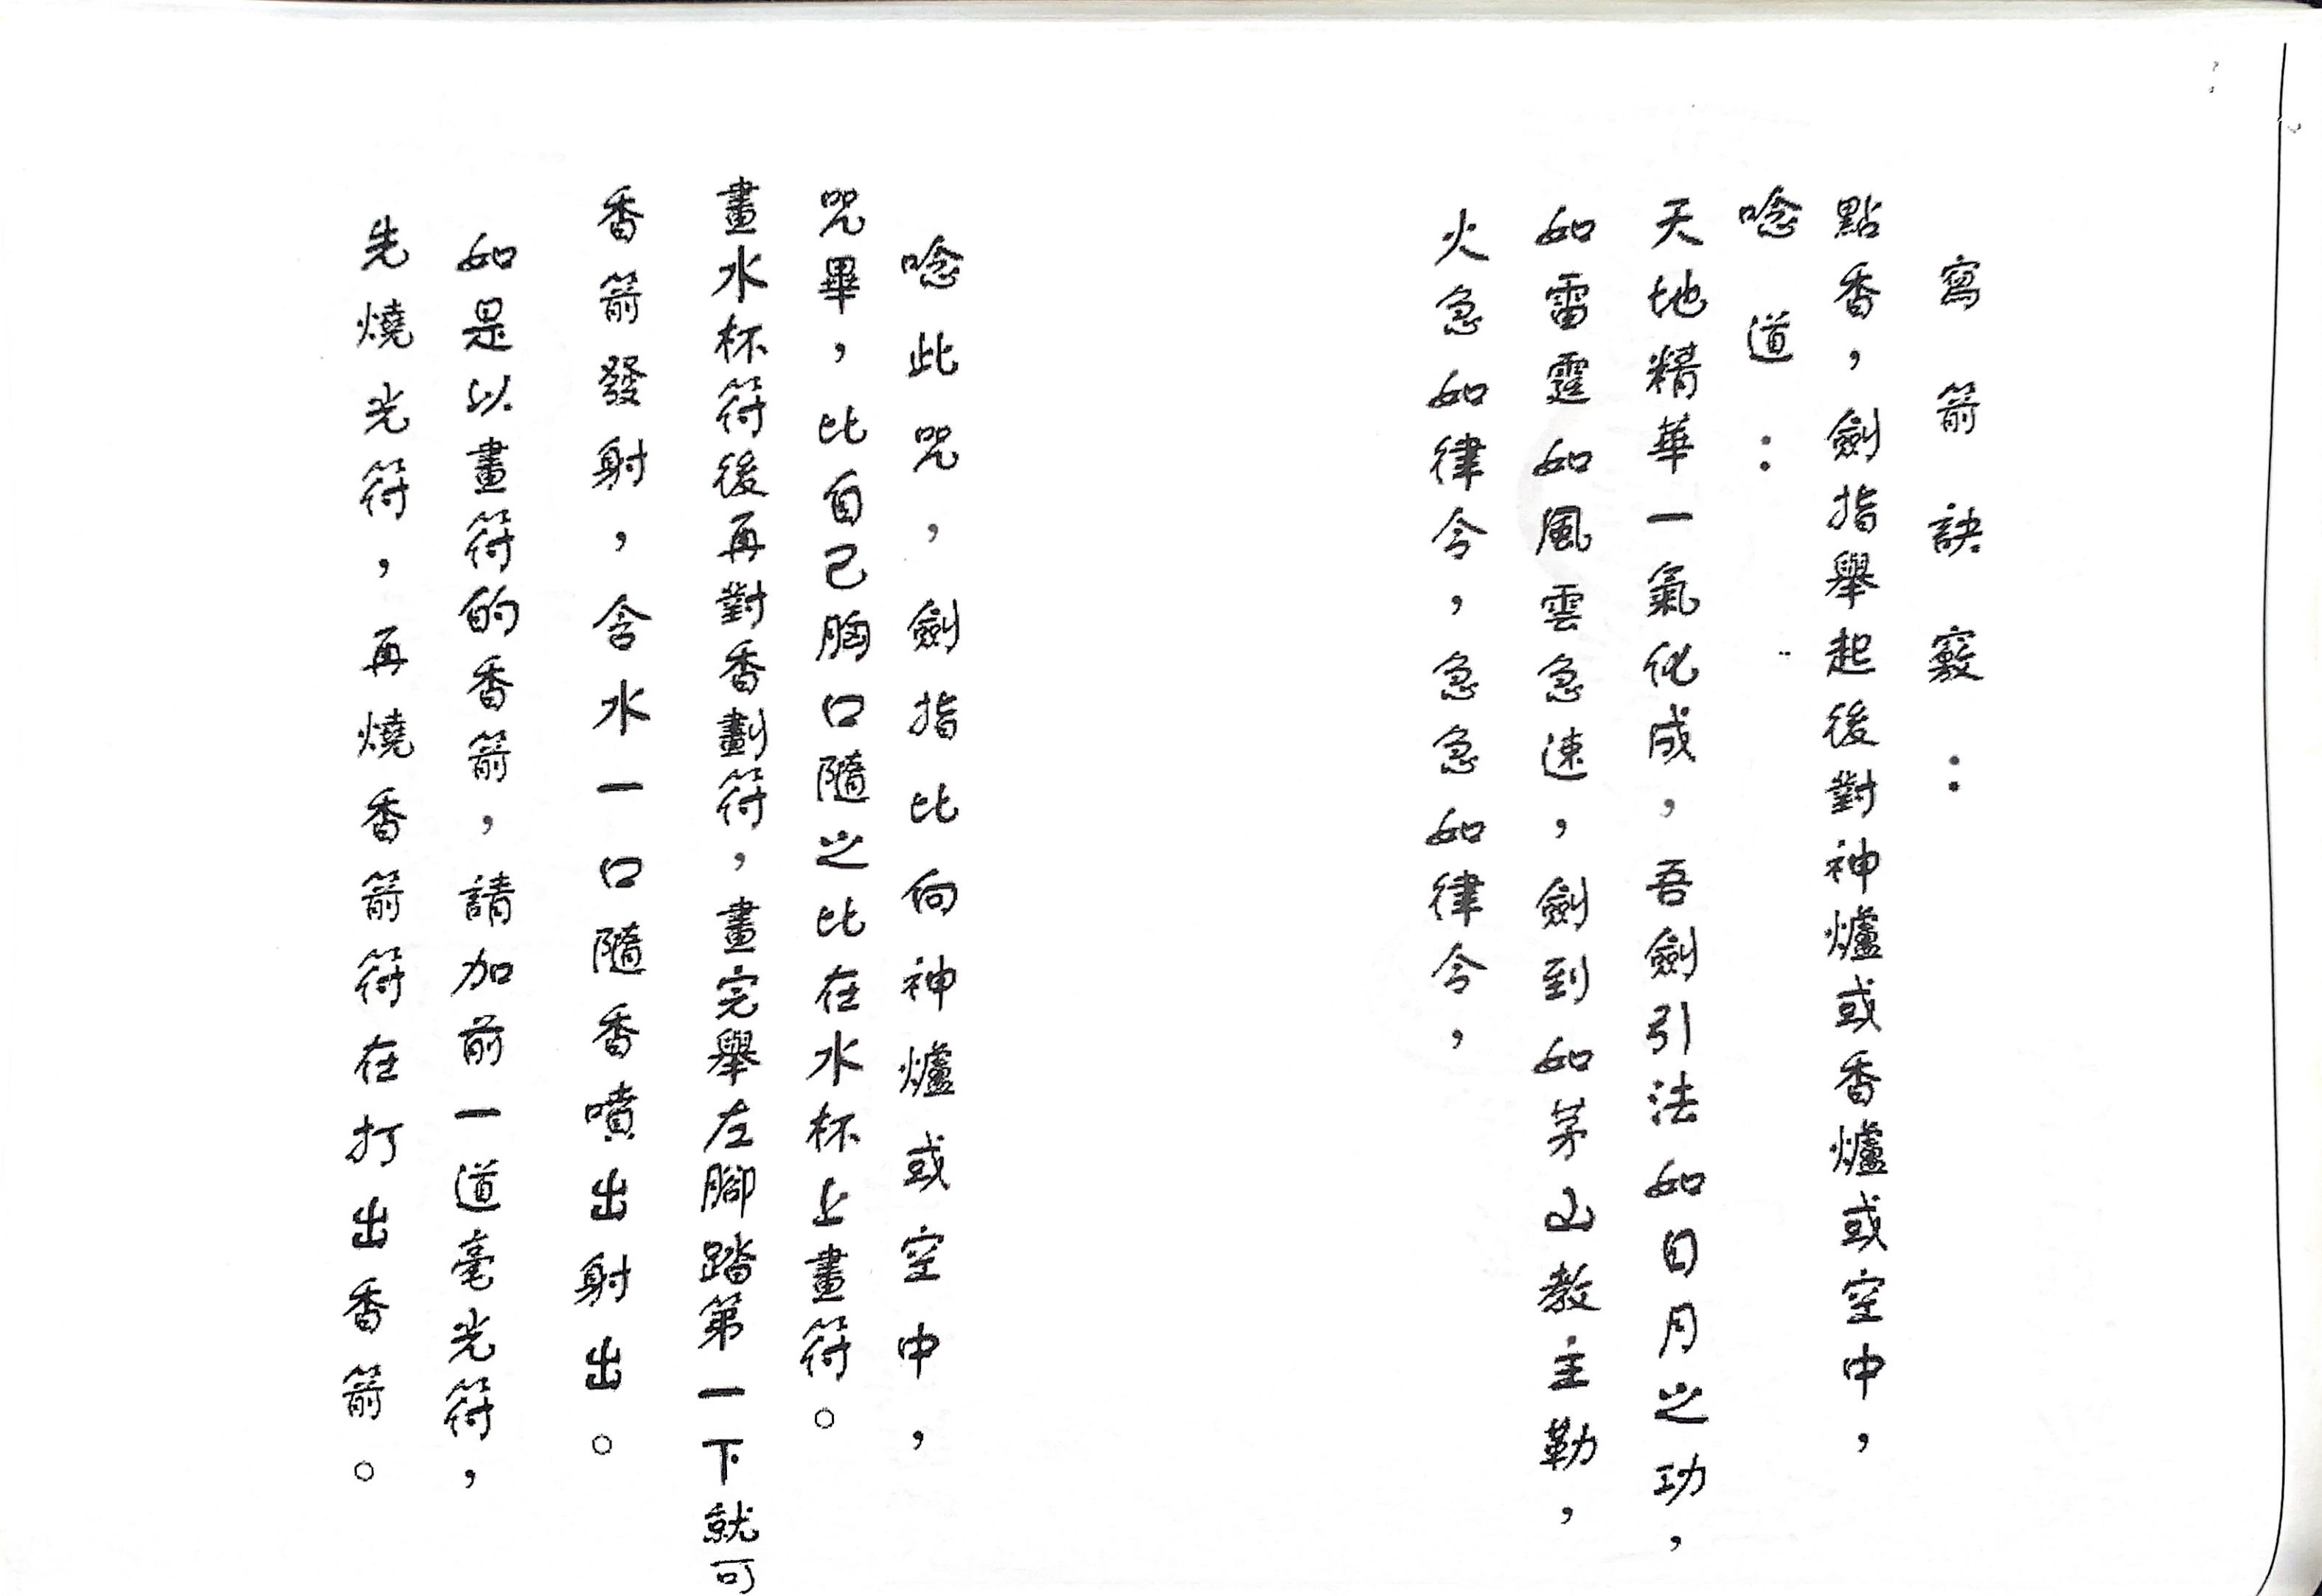 寫箭訣竅：
點香，劍指舉起後對神爐或香爐或空中，
唸道：
天地精華一氣化成，吾劍引法如日月之功，
如雷霆如風雲急速，劍到如茅山教主勒，
火急如律令，急急如律令，
唸此咒，劍指比向神爐或空中，
咒畢，比自己胸口隨之比在水杯上畫符。
畫水杯符後再對香劃符，畫完舉左腳踏第一下就可
香箭發射，含水一口隨香噴出射出。
如是以畫符的香箭，請加前一道毫光符，
先燒光符，再燒香箭符在打出香箭。